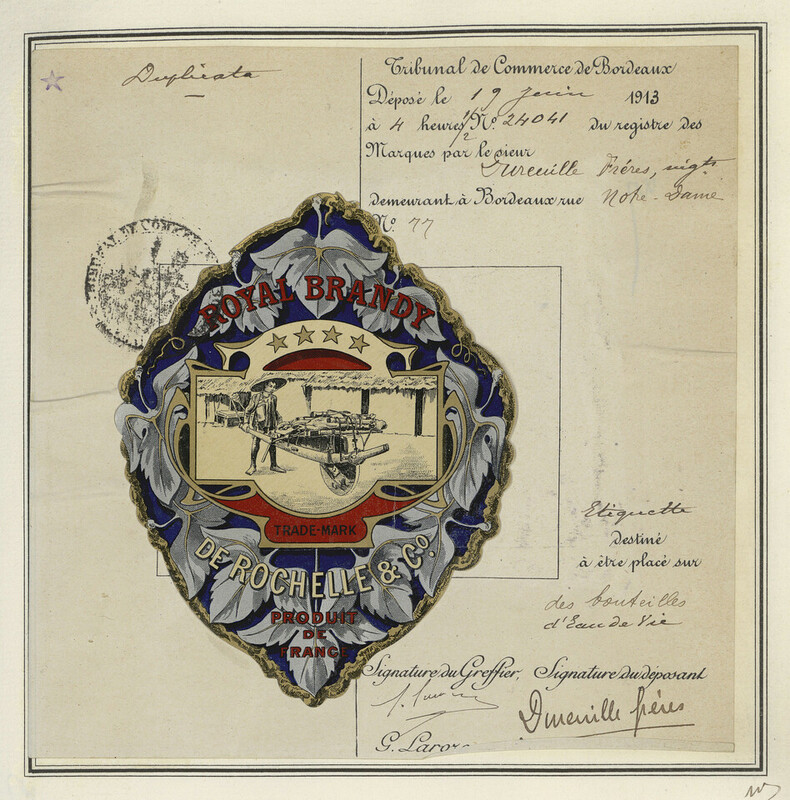 Duplicata
Tribunal de Commerce de Bordeaux
Déposé le 19 Juin 1913
à 4 heures 1/2 No. 24041 du registre des
Marques par le sieur
Dureuille Fréres, négts
demeurant à Bordeaux rue Notre-Dame
No. 77
TRIBUNAL DE COMMERCE
ROYAL BRANDY
TRADE-MARK
DE ROCHELLE & Co.
PRODUIT
DE
FRANCE
Etiquette
destiné
à être placé sur
des bouteilles
d'Eau de Vie
Signature du Greffier, Signature du déposant
Dureuille fréres